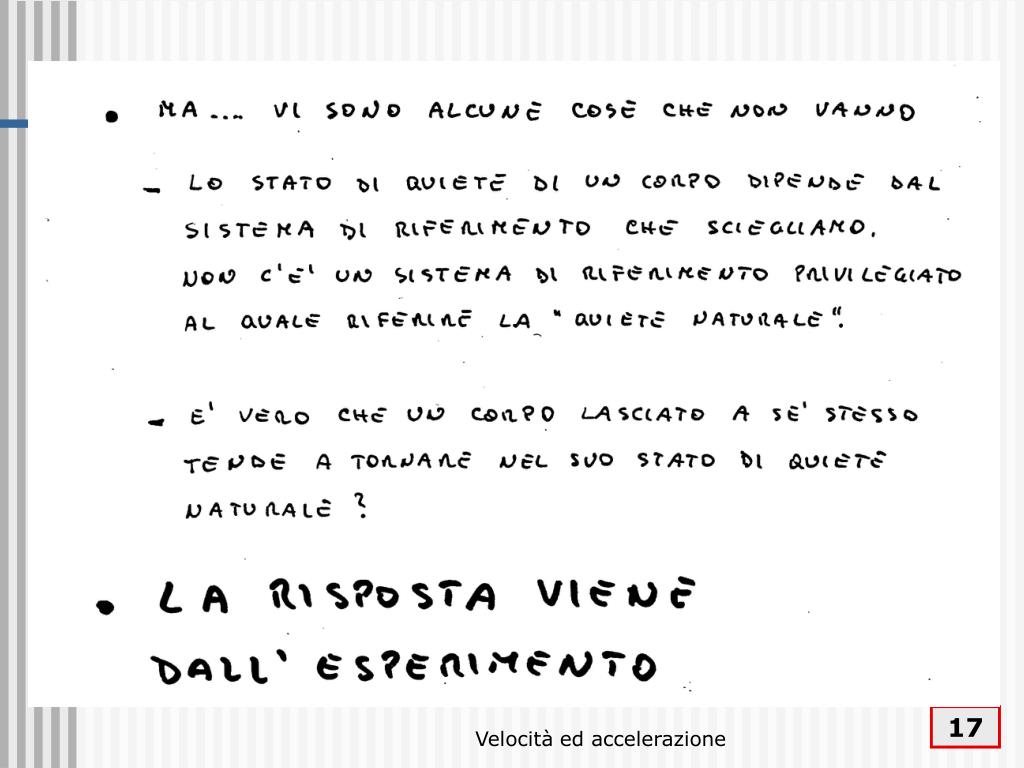 • MA .... VI SONO ALCUNE COSE CHE NON VANNO
– LO STATO DI QUIETE DI UN CORPO DIPENDE DAL
SISTEMA DI RIFERIMENTO CHE SCIEGLIAMO.
NON C'E' UN SISTEMA DI RIFERIMENTO PRIVILEGIATO
AL QUALE RIFERIRE LA "QUIETE NATURALE".
– E' VERO CHE UN CORPO LASCIATO A SE' STESSO
TENDE A TORNARE NEL SUO STATO DI QUIETE
NATURALE ?
• LA RISPOSTA VIENE
DALL' ESPERIMENTO
Velocità ed accelerazione
17